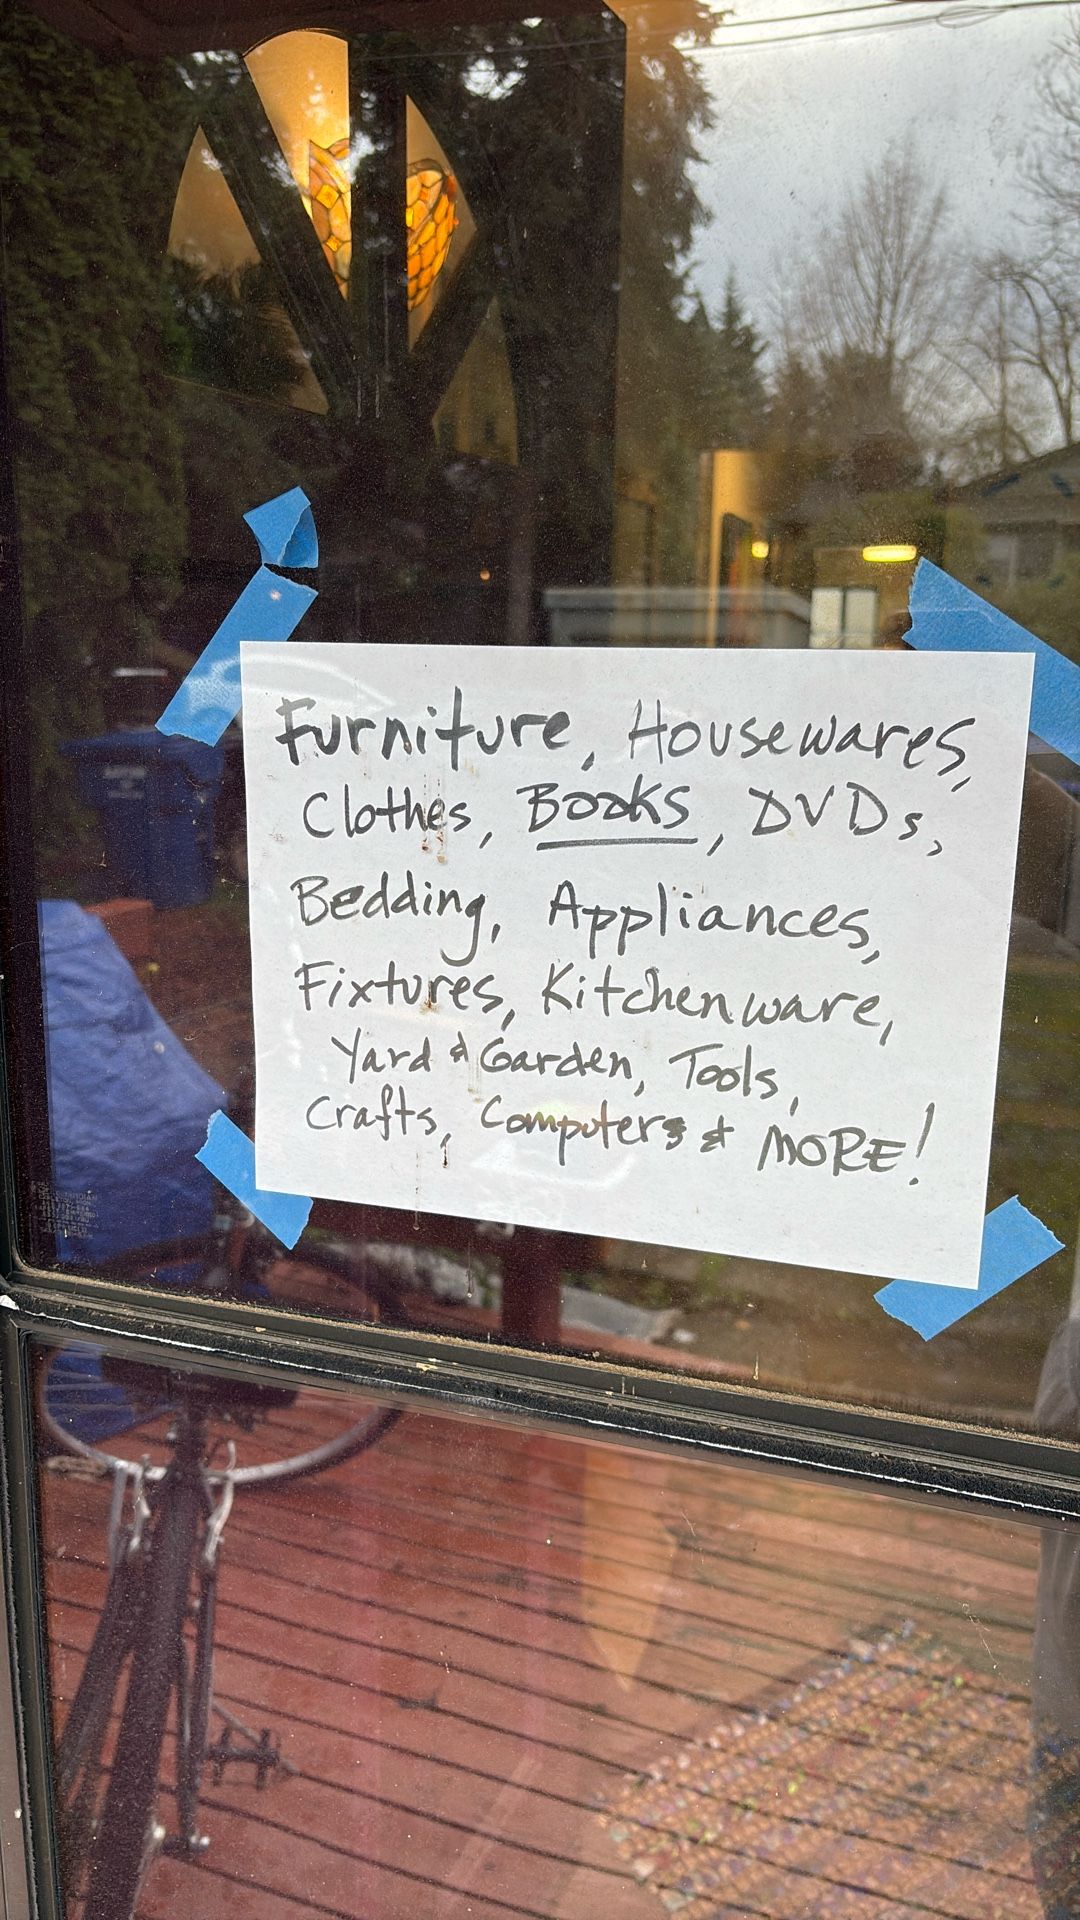 Furniture, Housewares,
Clothes, Books, DVDs,
Bedding, Appliances,
Fixtures, Kitchenware,
Yard & Garden, Tools,
Crafts, Computers & MORE!